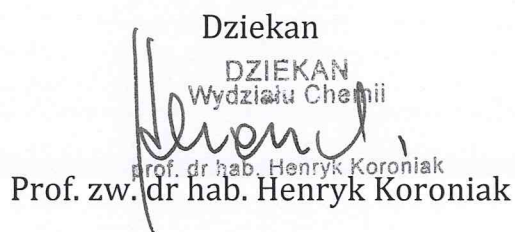 Dziekan
DZIEKAN
Wydziału Chemii
prof. dr hab. Henryk Koroniak
Prof. zw. dr hab. Henryk Koroniak